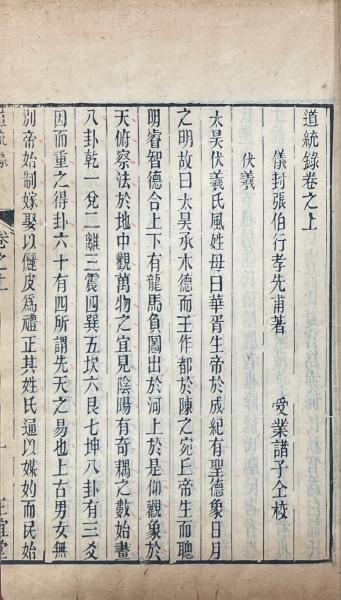 道統錄卷之上
儀封張伯行孝先甫著 受業諸子仝校
伏羲
太昊伏羲氏風姓母曰華胥生帝於成紀有聖德象日月
之明故曰太昊承木德而王作都於陳之宛丘帝生而聰
明睿智德合上下有龍馬負圖出於河上於是仰觀象於
天俯察法於地中觀萬物之宜見陰陽有奇耦之數始畫
八卦乾一兌二離三震四巽五坎六艮七坤八卦有三爻
因而重之得卦六十有四所謂先天之易也上古男女無
別帝始制嫁娶以儷皮爲禮正其姓氏通以媒妁而民始
道統錄 卷之上 一 正誼堂